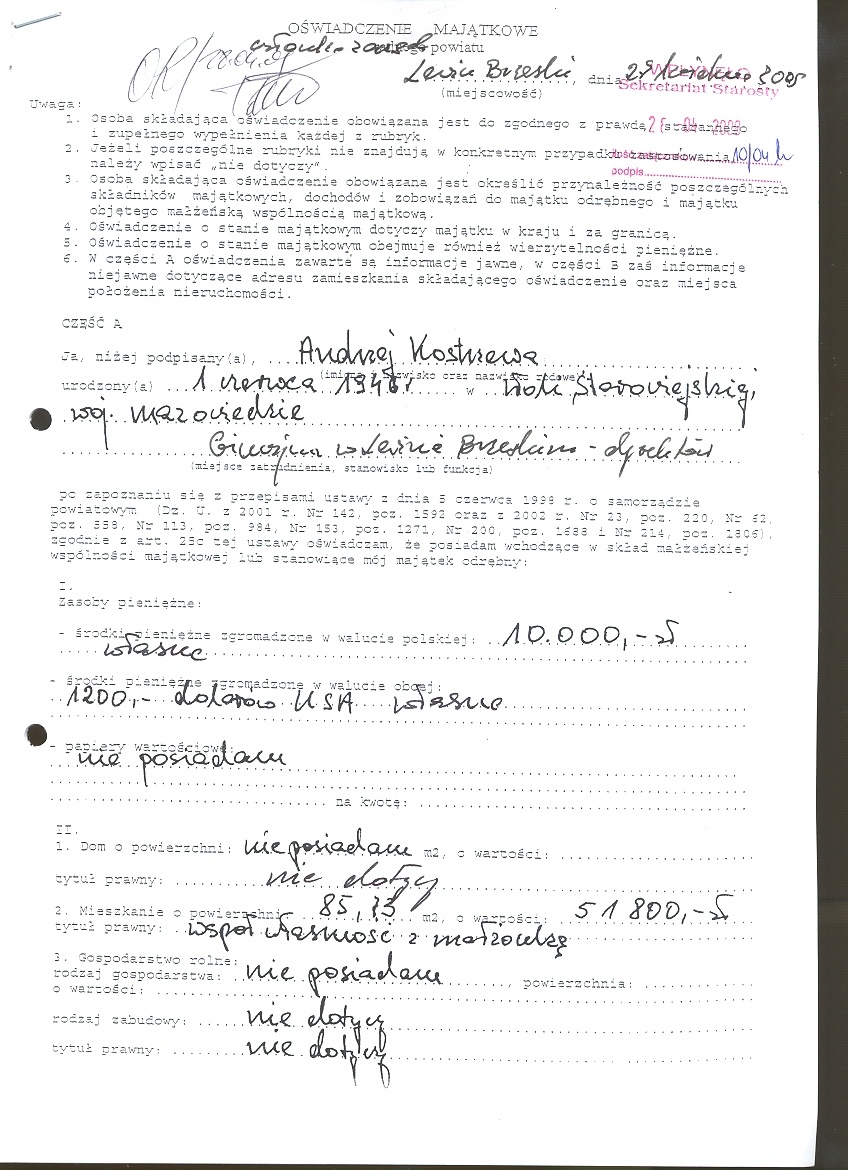 OŚWIADCZENIE MAJĄTKOWE
powiatu
Lewin Brzeski, dnia
(miejscowość)
WPŁYNĘŁO
Sekretariat Starosty
Uwaga:
1. Osoba składająca oświadczenie obowiązana jest do zgodnego z prawdą, starannego
i zupełnego wypełnienia każdej z rubryk.
2. Jeżeli poszczególne rubryki nie znajdują w konkretnym przypadku zastosowania,
należy wpisać „nie dotyczy”.
podpis
3. Osoba składająca oświadczenie obowiązana jest określić przynależność poszczególnych
składników majątkowych, dochodów i zobowiązań do majątku odrębnego i majątku
objętego małżeńską wspólnością majątkową.
4. Oświadczenie o stanie majątkowym dotyczy majątku w kraju i za granicą.
5. Oświadczenie o stanie majątkowym obejmuje również wierzytelności pieniężne.
6. W części A oświadczenia zawarte są informacje jawne, w części B zaś informacje
niejawne dotyczące adresu zamieszkania składającego oświadczenie oraz miejsca
położenia nieruchomości.
CZĘŚĆ A
Ja, niżej podpisany(a), Andrzej Kostrzewa
(imiona i nazwisko oraz nazwisko rodowe)
urodzony(a) 1 czerwca w Woli Starowiejskiej,
woj. mazowieckie
Gimnazjum w Lewinie Brzeskim - dyrektor
(miejsce zatrudnienia, stanowisko lub funkcja)
po zapoznaniu się z przepisami ustawy z dnia 5 czerwca 1998 r. o samorządzie
powiatowym (Dz. U. z 2001 r. Nr 142, poz. 1592 oraz z 2002 r. Nr 23, poz. 220, Nr 62,
poz. 558, Nr 113, poz. 984, Nr 153, poz. 1271, Nr 200, poz. 1688 i Nr 214, poz. 1806),
zgodnie z art. 25c tej ustawy oświadczam, że posiadam wchodzące w skład małżeńskiej
wspólności majątkowej lub stanowiące mój majątek odrębny:
I.
Zasoby pieniężne:
- środki pieniężne zgromadzone w walucie polskiej: 10.000,- zł
własne
- środki pieniężne zgromadzone w walucie obcej:
1200,- dolarów USA własne
- papiery wartościowe:
nie posiadam
na kwotę:
II.
1. Dom o powierzchni: nie posiadam m2, o wartości:
tytuł prawny: nie dotyczy
2. Mieszkanie o powierzchni: 85,73 m2, o wartości: 51 800,- zł
tytuł prawny: współwłasność z małżonką
3. Gospodarstwo rolne:
rodzaj gospodarstwa: nie posiadam, powierzchnia:
o wartości:
rodzaj zabudowy: nie dotyczy
tytuł prawny: nie dotyczy